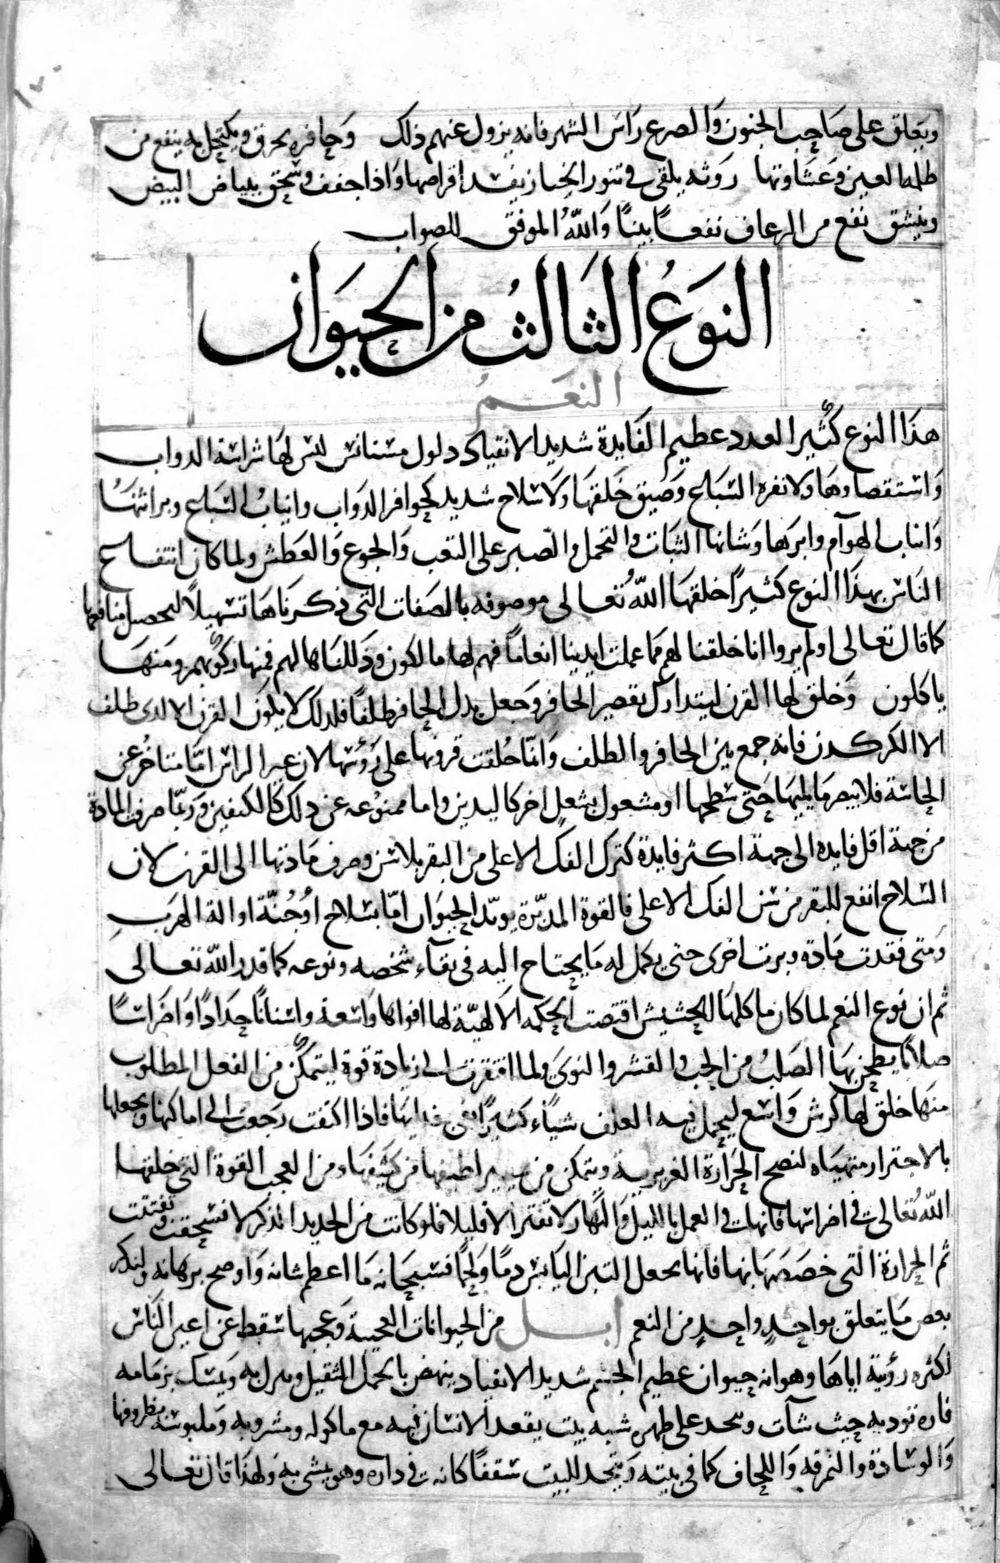 ويعلق على صاحب الجنون والصرع راس الشهر فانه يزول عنهم ذلك وحافره يحرق ويكتحل به ينفع من
ظلمة العين وغشاوتها روثه يلقى في تنور الخباز يفسد اقراصها واذا جفف وسحق ببياض البيض
وينشق نفع من الرعاف نفعا بينا والله الموفق للصواب
النوع الثالث من الحيوان
النعم
هذا النوع كثير العدد عظيم الفايدة شديد الانقياد ذلول مستانس ليس لها شراسة الدواب
واستقصاوها ولا نفرة السباع وضيق خلقها ولا سلاح شديد كحوافر الدواب وانياب السباع وبراثنها
وانياب الهوام وابرها وشانها الثبات والتحمل والصبر على التعب والجوع والعطش ولما كان انتفاع
الناس بهذا النوع كثيرا خلقها الله تعالى موصوفة بالصفات التي ذكرناها تسهيلا لتحصل منافعها
كما قال تعالى اولم يروا انا خلقنا لهم مما عملت ايدينا انعاما فهم لها مالكون وذللناها لهم فمنها ركوبهم ومنها
ياكلون وخلق لها القرن ليتدارك تقصير الحافر وجعل بدل الحافر ظلفا فلذلك لا يكون القرن الا لذي ظلف
الا الكركدن فانه جمع بين الحافر والظلف وانما خلقت قرونها على رؤسها لان غير الراس اما متاخر عن
الحاسة فلا يبصر ما يليها حتى ينطحها او مشغول بشغل اخر كاليدين واما ممنوعة عن ذلك كالكتفين وربما صرف المادة
من جهة اقل فايدة الى جهة اكثر فايدة كترك الفك الاعلى من البقر بلا سن وصرف مادتها الى القرن لان
السلاح انفع للبقر من سن الفك الاعلى فالقوة المدبرة يويد الحيوان اما بسلاح او جنة او الة الهرب
ومتى فقدت مادة دبرت اخرى حتى يكمل له ما يحتاج اليه في بقاء شخصه ونوعه كما قدر الله تعالى
ثم ان نوع النعم لما كان ماكلها الحشيش اقتضت الحكمه الالهية لها افواها واسعة واسنانا حدادا واضراسا
صلابا يطحن بها الصلب من الحب والقشر والنوى ولما افتقرت الى زيادة قوة ليتمكن من الفعل المطلوب
منها خلق لها كرش واسع ليحمل فيه العلف شياء كثيرا يفي غذايها فاذا اكتفت رجعت الى اماكنها وبجعلها
بالاجترار متهياه لنضج الحرارة الغريزية ويتمكن من لطيفها من كثيفها ومن العجب القوة التي خلقها
الله تعالى في اضراسها فانها في العمل بالليل والنهار لا تفتر الا قليلا فلو كانت من الحديد الذكر لانسحقت وتفتتت
ثم الحرارة التي خصصها بها فانها يجعل التبن اليابس دما ولحما فسبحانه ما اعظم شانه واوضح برهانه ولنذكر
بعض ما يتعلق بواحد واحد من النعم ابل من الحيوانات العجيبة وعجبها سقط عن اعين الناس
لكثرة رؤية اياها وهو انه حيوان عظيم الجسم شديد الانقياد ينهض بالحمل الثقيل ويبرك به ويمسك بزمامه
فارة تقود به حيث شات ويتخذ على ظهره شبه بيت يقعد الانسان فيه مع ماكوله ومشروبه وملبوسه بظروفها
والوسادة والنمرقة واللحاف كما في بيته ويتخذ للبيت سقفا كانه في داره وهو يمشي به ولهذا قال تعالى